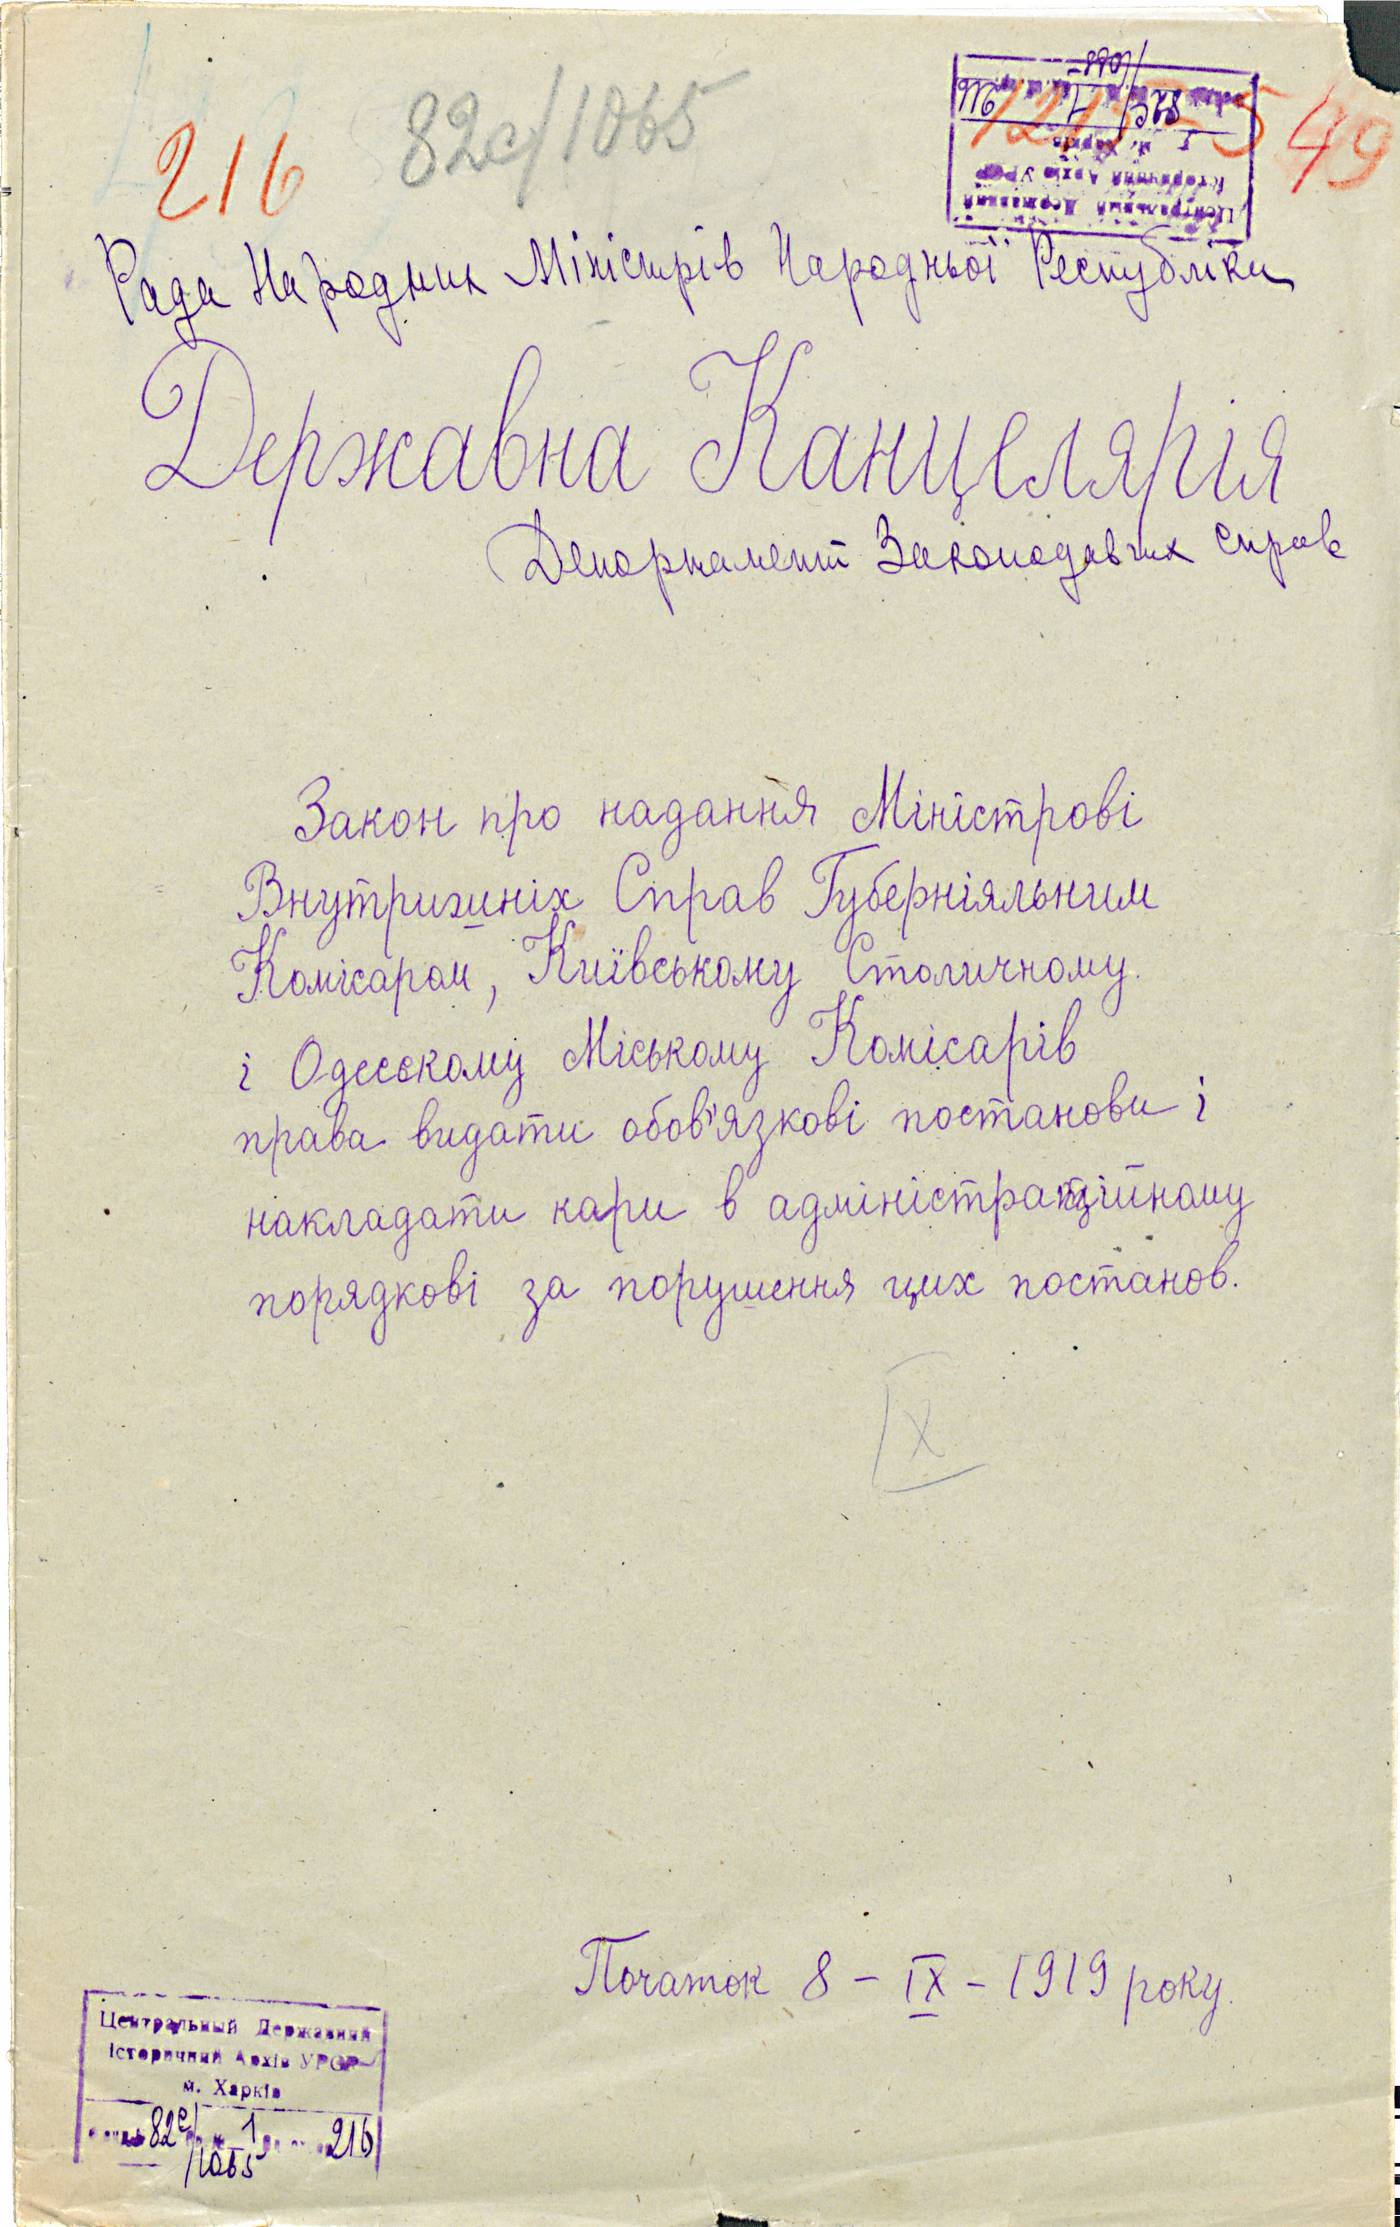 216 82с/1065
49
Рада Народних Міністрів Народньої Республіки
Державна Канцелярія
Департамент Законодавчих Справ
Закон про надання Міністрові
Внутришніх Справ Губерніяльним
Комісарам, Київському Столичному
і Одеєскому Міському Комісарів
права видати обов'язкові постанови і
накладати кари в адміністраційному
порядкові за порушення цих постанов.
IX
Початок 8 – IX – 1919 року.
Центральный Державний
Історичний Архів УРСР
м. Харків
82с/1065 1 216